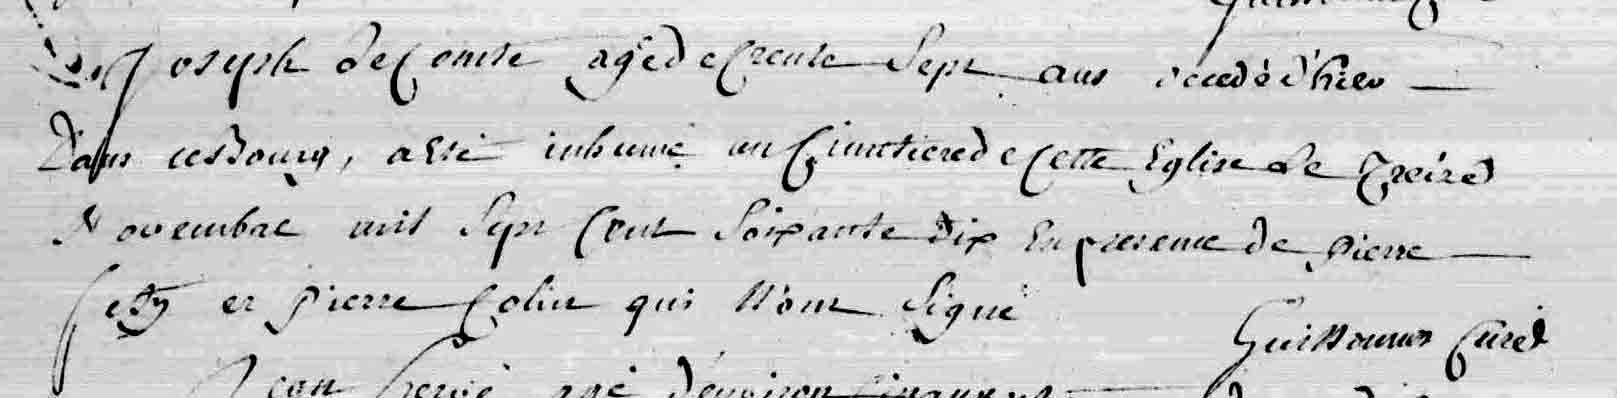 Joseph de Comte agé de trente Sept ans decedé d'hier
Dans ce Bourg, a eté inhumé au Cimetiere de Cette Eglise le treize
Novembre mil Sept Cent Soixante Dix En presence de pierre
et pierre Colin qui N'ont Signé
Curé
Jean hervé agé d'environ Cinquante